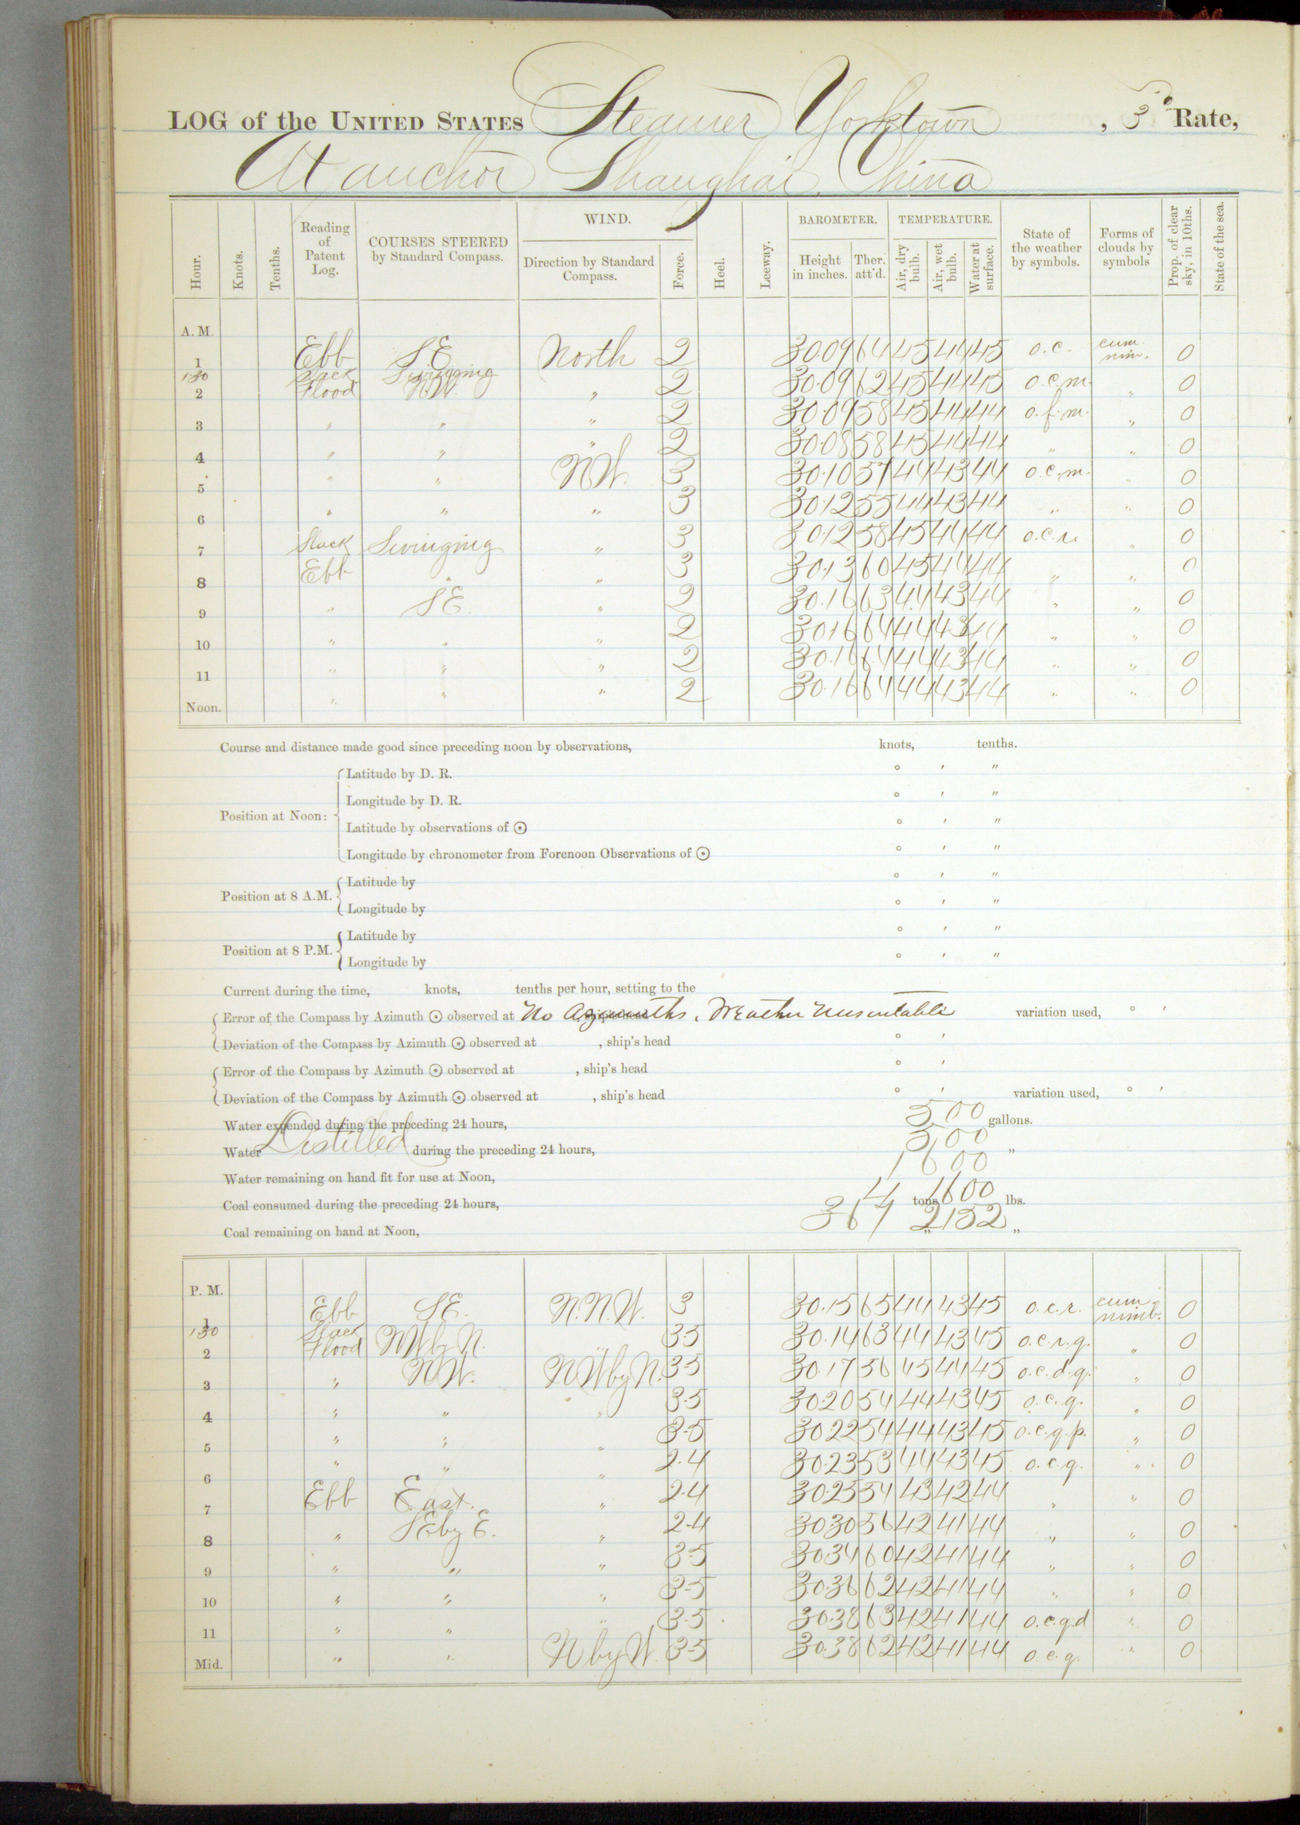 LOG of the UNITED STATES Steamer Yorktown, 3° Rate,
At anchor Shanghai, China
Hour. Knots. Tenths. Reading of Patent Log. COURSES STEERED by Standard Compass. WIND. Direction by Standard Compass. Force. Heel. Leeway. BAROMETER. Height in inches. Ther. att'd. TEMPERATURE. Air, dry bulb. Air, wet bulb. Water at surface. State of the weather by symbols. Forms of clouds by symbols Prop. of clear sky, in 10ths. State of the sea.
A. M.
1 Ebb SE North 2 30.09 64 45 44 45 o.c. cum. nim. 0
130 Slack Swinging
2 Flood NW. " 2 30.09 62 45 44 45 o.c.m. " 0
3 " " " 2 30.09 58 45 44 44 o.f.m. " 0
4 " " " 2 30.08 58 45 44 44 " " 0
5 " " NW. 3 30.10 57 44 43 44 o.c.m. " 0
6 " " " 3 30.12 55 44 43 44 " " 0
7 Slack Swinging " 3 30.12 58 45 44 44 o.c.r. " 0
8 Ebb " " 3 30.13 60 45 44 44 " " 0
9 " SE. " 2 30.16 63 44 43 44 " " 0
10 " " " 2 30.16 64 44 43 44 " " 0
11 " " " 2 30.16 64 44 43 44 " " 0
Noon. " " " 2 30.16 64 44 43 44 " " 0
Course and distance made good since preceding noon by observations, knots, tenths.
Position at Noon: Latitude by D. R. ° ' "
Longitude by D. R. ° ' "
Latitude by observations of ☉ ° ' "
Longitude by chronometer from Forenoon Observations of ☉ ° ' "
Position at 8 A.M. Latitude by ° ' "
Longitude by ° ' "
Position at 8 P.M. Latitude by ° ' "
Longitude by ° ' "
Current during the time, knots, tenths per hour, setting to the
Error of the Compass by Azimuth ☉ observed at No Azimuths. Weather Unsuitable variation used, ° '
Deviation of the Compass by Azimuth ☉ observed at , ship's head ° '
Error of the Compass by Azimuth ☉ observed at , ship's head ° '
Deviation of the Compass by Azimuth ☉ observed at , ship's head ° ' variation used, ° '
Water expended during the preceding 24 hours, 500 gallons.
Water Distilled during the preceding 24 hours, 500 "
Water remaining on hand fit for use at Noon, 1600
Coal consumed during the preceding 24 hours, 4 tons 1600 lbs.
Coal remaining on hand at Noon, 364 " 2132 "
P. M.
1 Ebb SE. N.N.W. 3 30.15 65 44 43 45 o.c.r. cum. nimb. 0
130 Slack
2 Flood NW by N. " 3-5 30.14 63 44 43 45 o.c.r.q. " 0
3 " NW. NW by N. 3-5 30.17 56 45 44 45 o.c.d.q. " 0
4 " " " 3-5 30.20 54 44 43 45 o.c.q. " 0
5 " " " 3-5 30.22 54 44 43 45 o.c.q.p. " 0
6 " " " 2-4 30.23 53 44 43 45 o.c.q. " 0
7 Ebb East. " 2-4 30.25 54 43 42 44 " " 0
8 " SE by E. " 2-4 30.30 56 42 41 44 " " 0
9 " " " 3-5 30.34 60 42 41 44 " " 0
10 " " " 3-5 30.36 62 42 41 44 " " 0
11 " " " 3-5 30.38 63 42 41 44 o.c.q.d " 0
Mid. " " N by W. 3-5 30.38 62 42 41 44 o.c.q. " 0